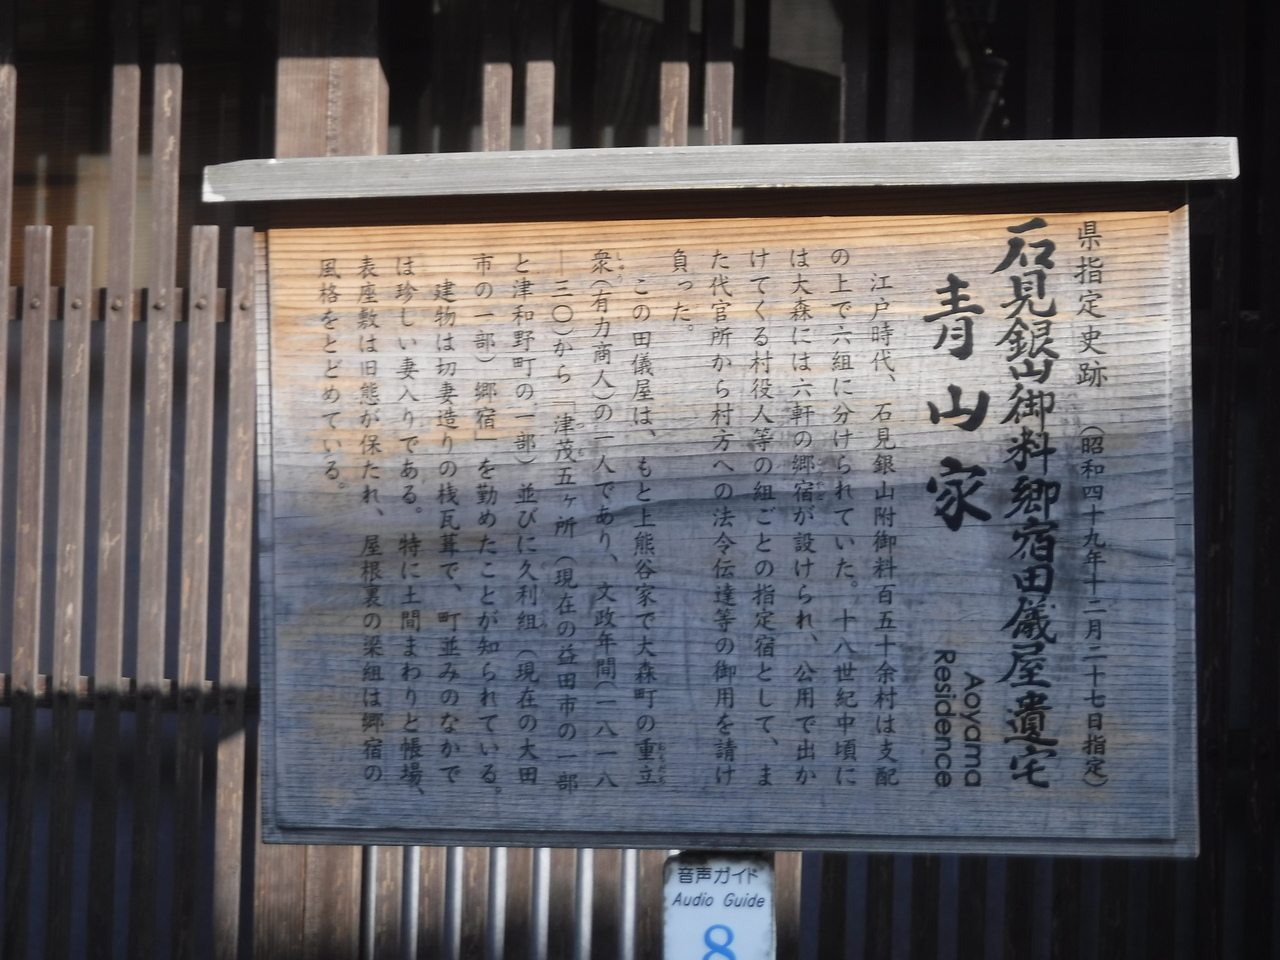 県指定史跡 (昭和四十九年十二月二十七日指定)
石見銀山御料郷宿田儀屋遺宅
青山家
Aoyama
Residence
江戸時代、石見銀山附御料百五十余村は支配
の上で六組に分けられていた。十八世紀中頃に
は大森には六軒の郷宿が設けられ、公用で出か
けてくる村役人等の組ごとの指定宿として、ま
た代官所から村方への法令伝達等の御用を請け
負った。
この田儀屋は、もと上熊谷家で大森町の重立
衆(有力商人)の一人であり、文政年間(一八一八
―三〇)から「津茂五ヶ所(現在の益田市の一部
と津和野町の一部)並びに久利組(現在の大田
市の一部)郷宿」を勤めたことが知られている。
建物は切妻造りの桟瓦葺で、町並みのなかで
は珍しい妻入りである。特に土間まわりと帳場、
表座敷は旧態が保たれ、屋根裏の梁組は郷宿の
風格をとどめている。
音声ガイド
Audio Guide
8